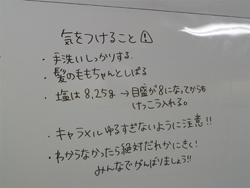 気をつけること!
・手洗いしっかりする.
・髪のももちゃんとしばる
・塩は8.25g → 目盛が8になってからも
けっこう入れる。
・キャラメルゆるすぎないように注意!!
・わからなかったら絶対だれかにきく!
みんなでがんばりましょう!!